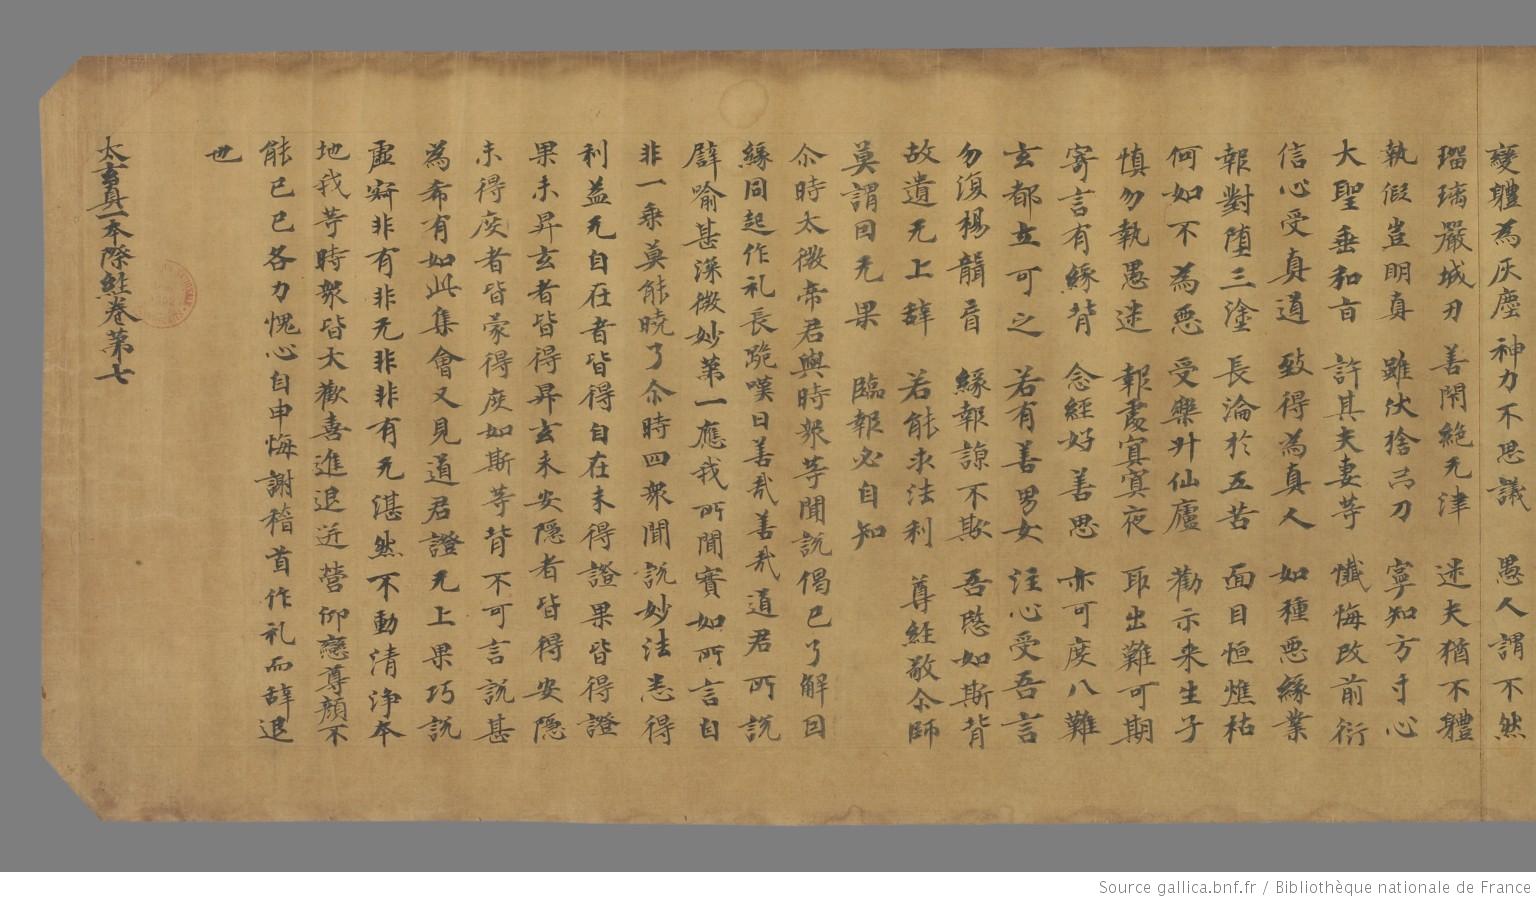 變體為灰塵 神力不思議 愚人謂不然
瑠璃嚴城刃 善閇絶无津 迷夫猶不體
執假豈明真 雖伏捨 刀 寧知方寸心
大聖垂和音 許其夫妻等 懺悔改前衍
信心受真道 致得為真人 如種惡緣業
報對堕三塗 長淪於五苦 面目恒燋枯
何如不為惡 受樂升仙廬 勸示来生子
慎勿執愚迷 報處寘寘夜 耶出難可期
寄言有緣背 念經好善思 亦可度八難
玄都立可之 若有善男女 注心受吾言
勿復楊韻音 緣報諒不欺 吾愍如斯背
故遺无上辞 若能求法利 尊經敬尒師
莫謂因无果 臨報必自知
尒時太微帝君與時衆等聞説偈已了解因
緣同起作礼長跪嘆曰善哉善哉道君所説
辟喻甚深微妙第一應我所聞實如所言自
非一乗莫能暁了尒時四衆聞説妙法悉得
利益无自在者皆得自在未得證果皆得證
果未昇玄者皆得昇玄未安隱者皆得安隱
未得度者皆蒙得度如斯等背不可言説甚
為希有如此集會又見道君證无上果巧説
虚寂非有非无非非有无湛然不動清浄本
地我等時衆皆大歡喜進退迸營仰戀尊顔不
能已已各力愧心自申悔謝稽首作礼而辞退
也
太玄真一本際經卷第七
Source gallica.bnf.fr / Bibliothèque nationale de France